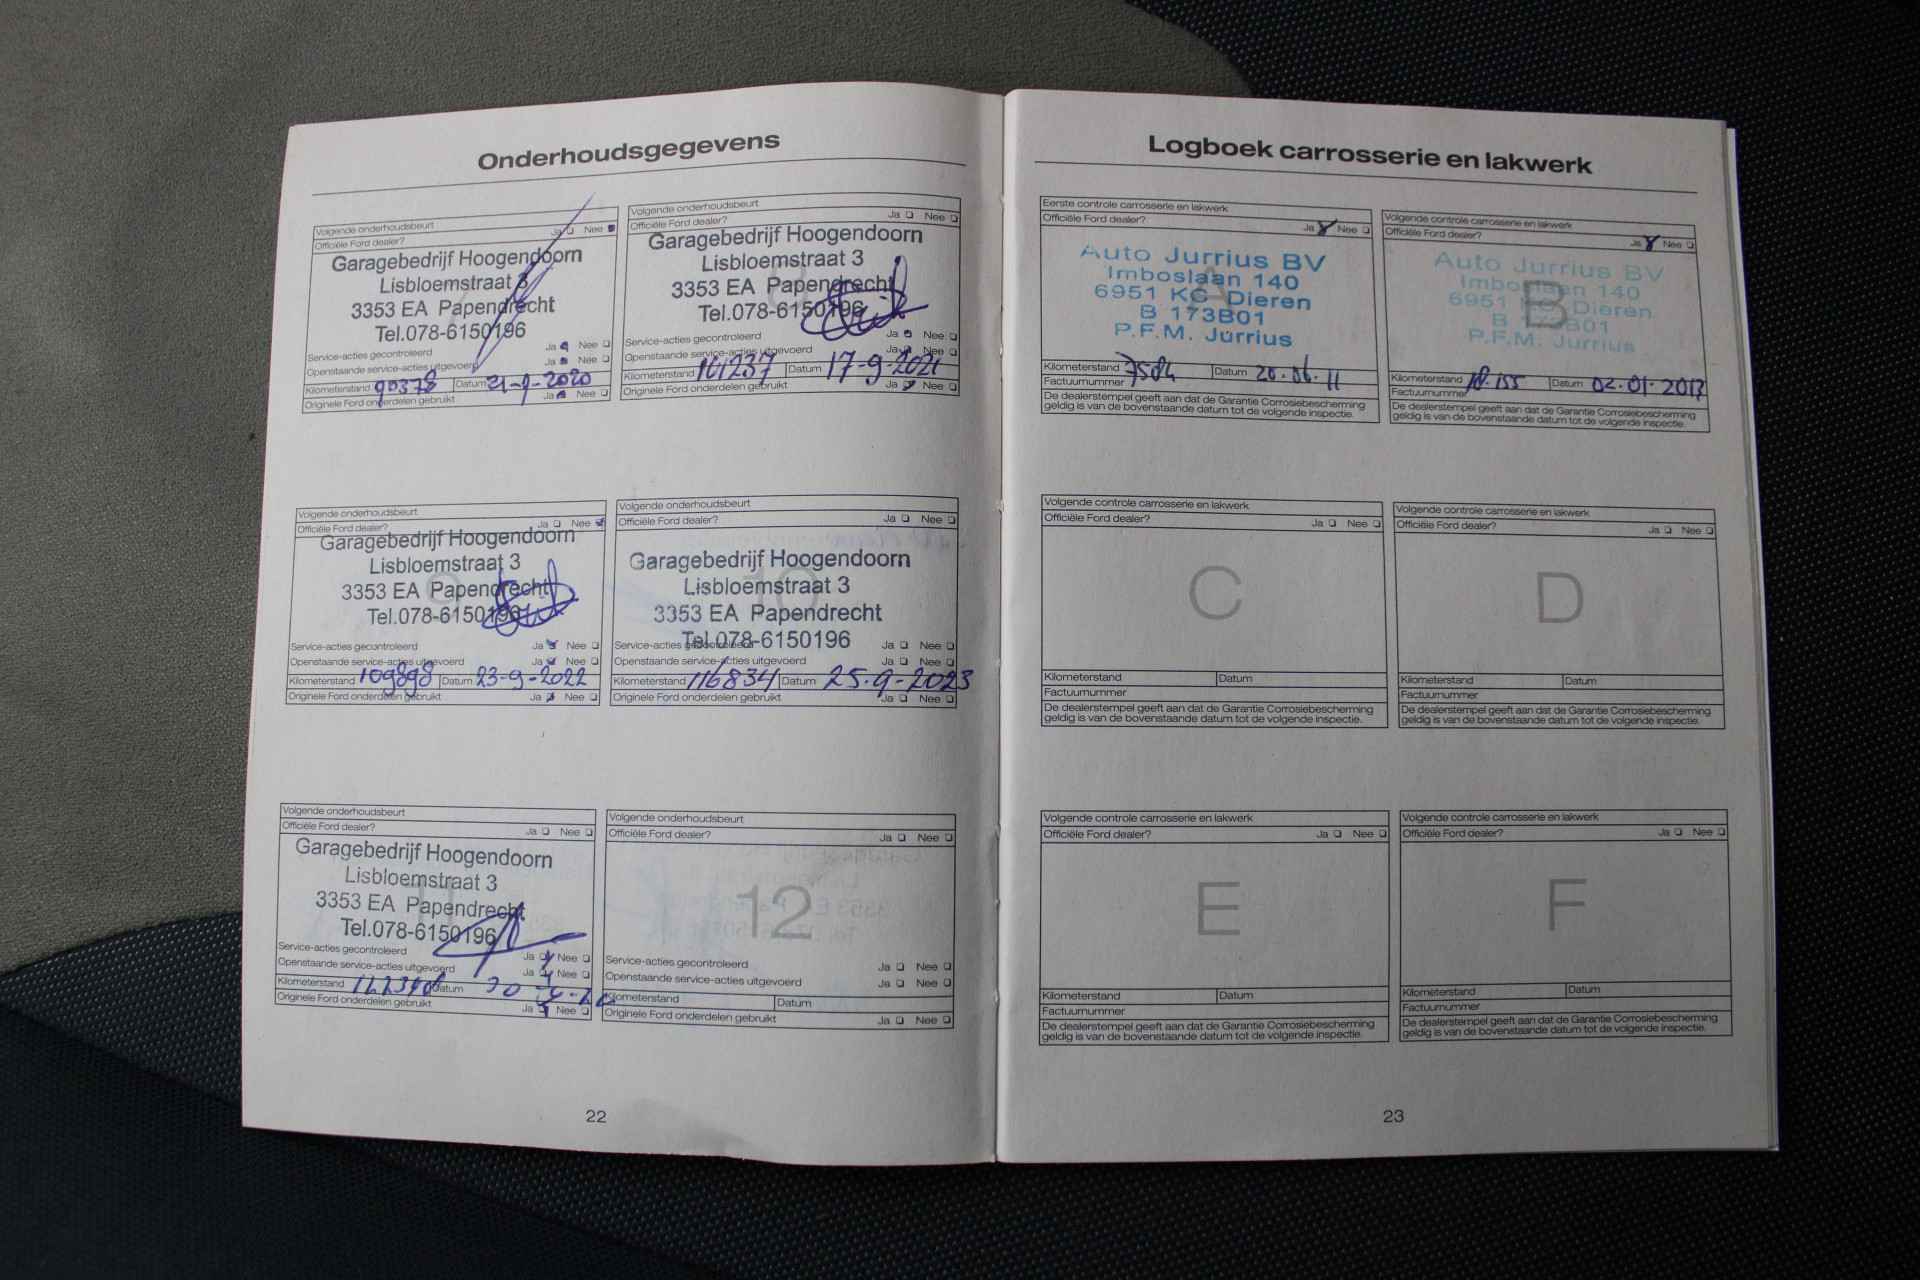 Onderhoudsgegevens
Volgende onderhoudsbeurt
Officiële Ford dealer? Ja Nee
Garagebedrijf Hoogendoorn
Lisbloemstraat 3
3353 EA Papendrecht
Tel.078-6150196
Service-acties gecontroleerd Ja Nee
Openstaande service-acties uitgevoerd Ja Nee
Kilometerstand 90378 Datum 21-9-2020
Originele Ford onderdelen gebruikt Ja Nee
Volgende onderhoudsbeurt
Officiële Ford dealer? Ja Nee
8
Garagebedrijf Hoogendoorn
Lisbloemstraat 3
3353 EA Papendrecht
Tel.078-6150196
Service-acties gecontroleerd Ja Nee
Openstaande service-acties uitgevoerd Ja Nee
Kilometerstand 101237 Datum 17-9-2021
Originele Ford onderdelen gebruikt Ja Nee
Volgende onderhoudsbeurt
Officiële Ford dealer? Ja Nee
9
Garagebedrijf Hoogendoorn
Lisbloemstraat 3
3353 EA Papendrecht
Tel.078-6150196
Service-acties gecontroleerd Ja Nee
Openstaande service-acties uitgevoerd Ja Nee
Kilometerstand 109898 Datum 23-9-2022
Originele Ford onderdelen gebruikt Ja Nee
Volgende onderhoudsbeurt
Officiële Ford dealer? Ja Nee
10
Garagebedrijf Hoogendoorn
Lisbloemstraat 3
3353 EA Papendrecht
Tel.078-6150196
Service-acties gecontroleerd Ja Nee
Openstaande service-acties uitgevoerd Ja Nee
Kilometerstand 116834 Datum 25-9-2023
Originele Ford onderdelen gebruikt Ja Nee
Volgende onderhoudsbeurt
Officiële Ford dealer? Ja Nee
11
Garagebedrijf Hoogendoorn
Lisbloemstraat 3
3353 EA Papendrecht
Tel.078-6150196
Service-acties gecontroleerd Ja Nee
Openstaande service-acties uitgevoerd Ja Nee
Kilometerstand Datum
Originele Ford onderdelen gebruikt Ja Nee
Volgende onderhoudsbeurt
Officiële Ford dealer? Ja Nee
12
Service-acties gecontroleerd Ja Nee
Openstaande service-acties uitgevoerd Ja Nee
Kilometerstand Datum
Originele Ford onderdelen gebruikt Ja Nee
22
Logboek carrosserie en lakwerk
Eerste controle carrosserie en lakwerk
Officiële Ford dealer? Ja Nee
A
Auto Jurrius BV
Imboslaan 140
6951 KC Dieren
B 173B01
P.F.M. Jurrius
Kilometerstand 7584 Datum 20.06.11
Factuurnummer
De dealerstempel geeft aan dat de Garantie Corrosiebescherming
geldig is van de bovenstaande datum tot de volgende inspectie.
Volgende controle carrosserie en lakwerk
Officiële Ford dealer? Ja Nee
B
Auto Jurrius BV
Imboslaan 140
6951 KC Dieren
B 173B01
P.F.M. Jurrius
Kilometerstand 18.155 Datum 02.01.2013
Factuurnummer
De dealerstempel geeft aan dat de Garantie Corrosiebescherming
geldig is van de bovenstaande datum tot de volgende inspectie.
Volgende controle carrosserie en lakwerk
Officiële Ford dealer? Ja Nee
C
Kilometerstand Datum
Factuurnummer
De dealerstempel geeft aan dat de Garantie Corrosiebescherming
geldig is van de bovenstaande datum tot de volgende inspectie.
Volgende controle carrosserie en lakwerk
Officiële Ford dealer? Ja Nee
D
Kilometerstand Datum
Factuurnummer
De dealerstempel geeft aan dat de Garantie Corrosiebescherming
geldig is van de bovenstaande datum tot de volgende inspectie.
Volgende controle carrosserie en lakwerk
Officiële Ford dealer? Ja Nee
E
Kilometerstand Datum
Factuurnummer
De dealerstempel geeft aan dat de Garantie Corrosiebescherming
geldig is van de bovenstaande datum tot de volgende inspectie.
Volgende controle carrosserie en lakwerk
Officiële Ford dealer? Ja Nee
F
Kilometerstand Datum
Factuurnummer
De dealerstempel geeft aan dat de Garantie Corrosiebescherming
geldig is van de bovenstaande datum tot de volgende inspectie.
23